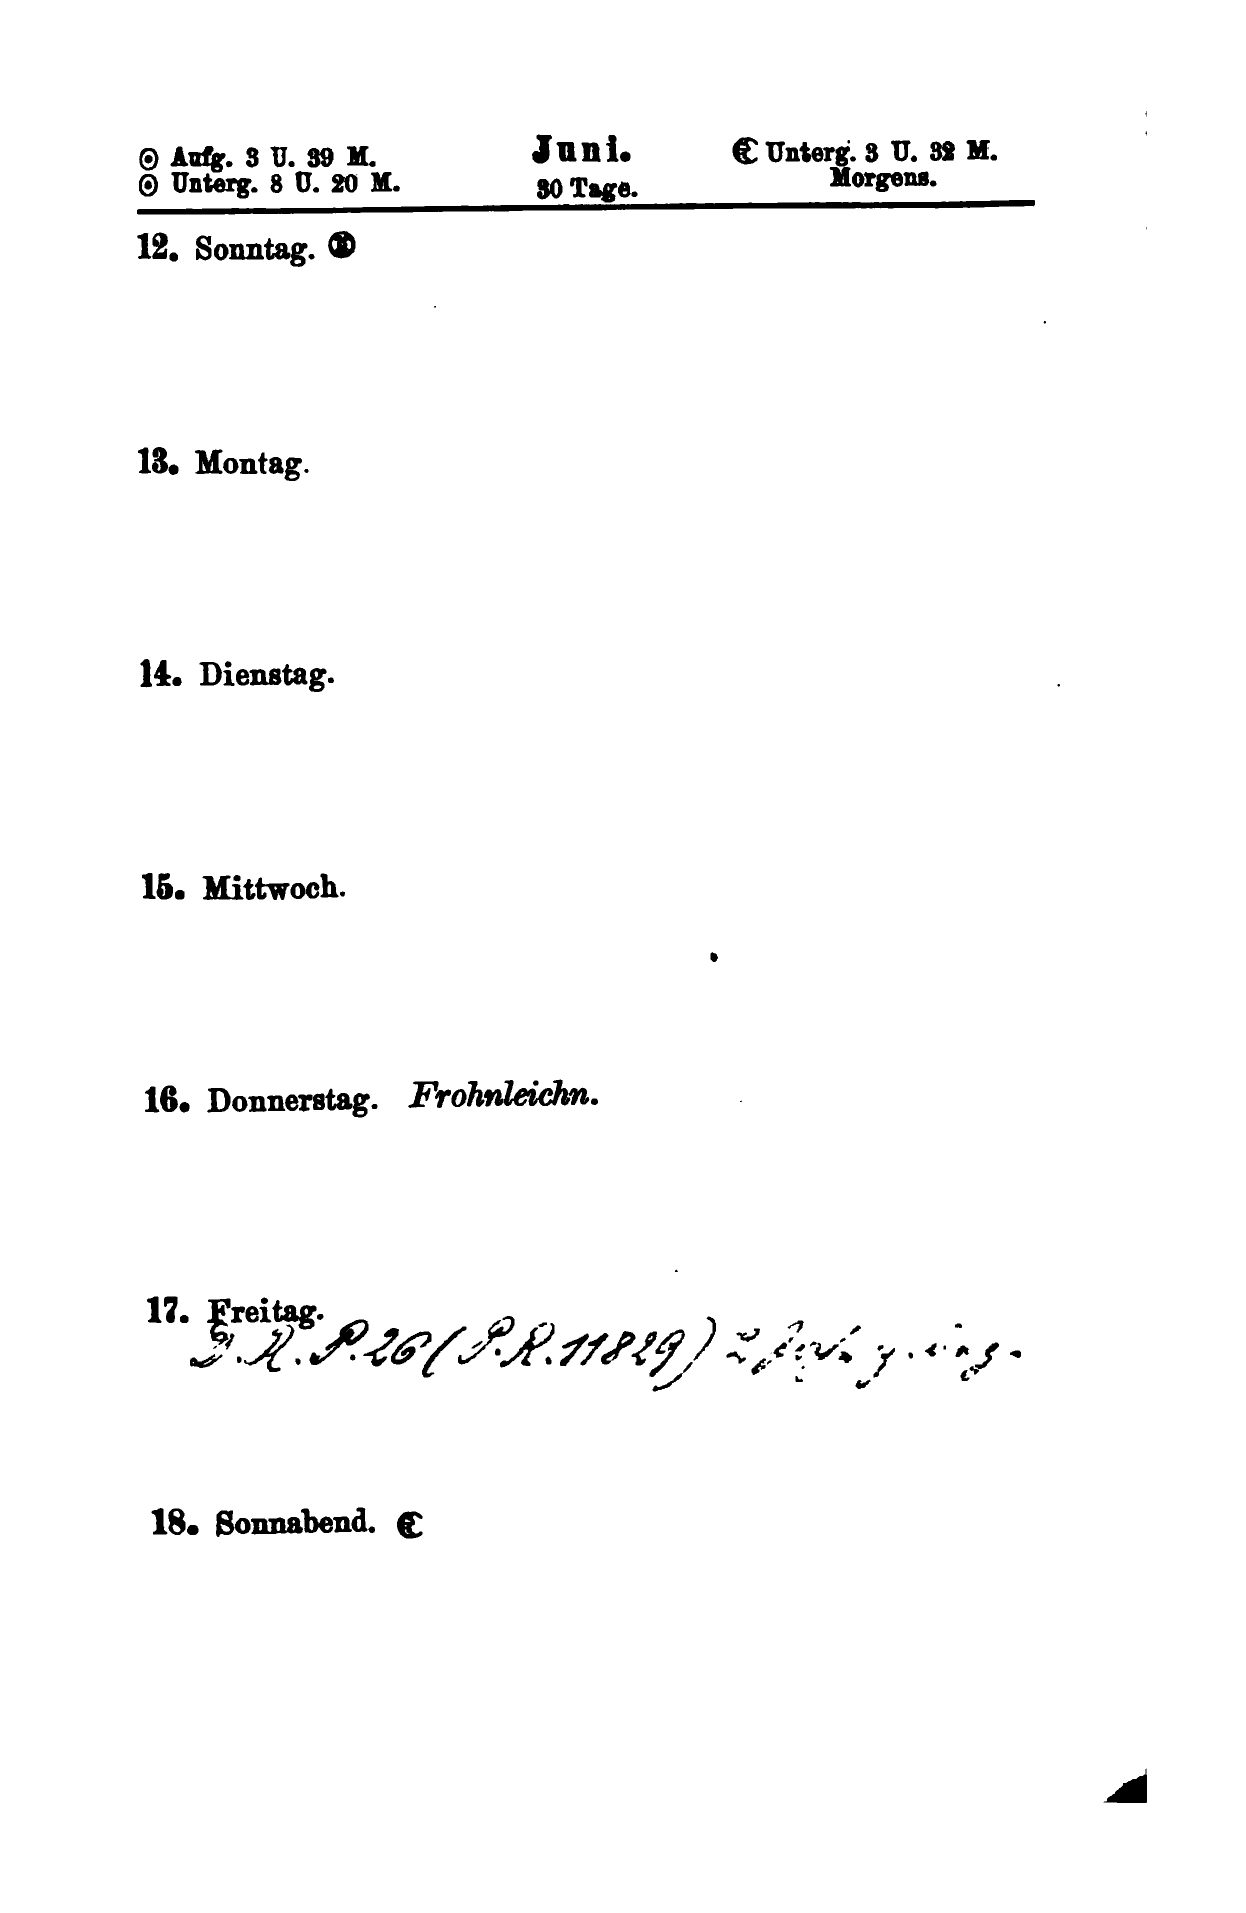 ☉ Aufg. 3 U. 39 M.
☉ Unterg. 8 U. 20 M.
Juni.
30 Tage.
☾ Unterg. 3 U. 32 M.
Morgens.
12. Sonntag.
13. Montag.
14. Dienstag.
15. Mittwoch.
16. Donnerstag. Frohnleichn.
17. Freitag.
D.R.P. 26 (P.R. 11829)
18. Sonnabend. ☾